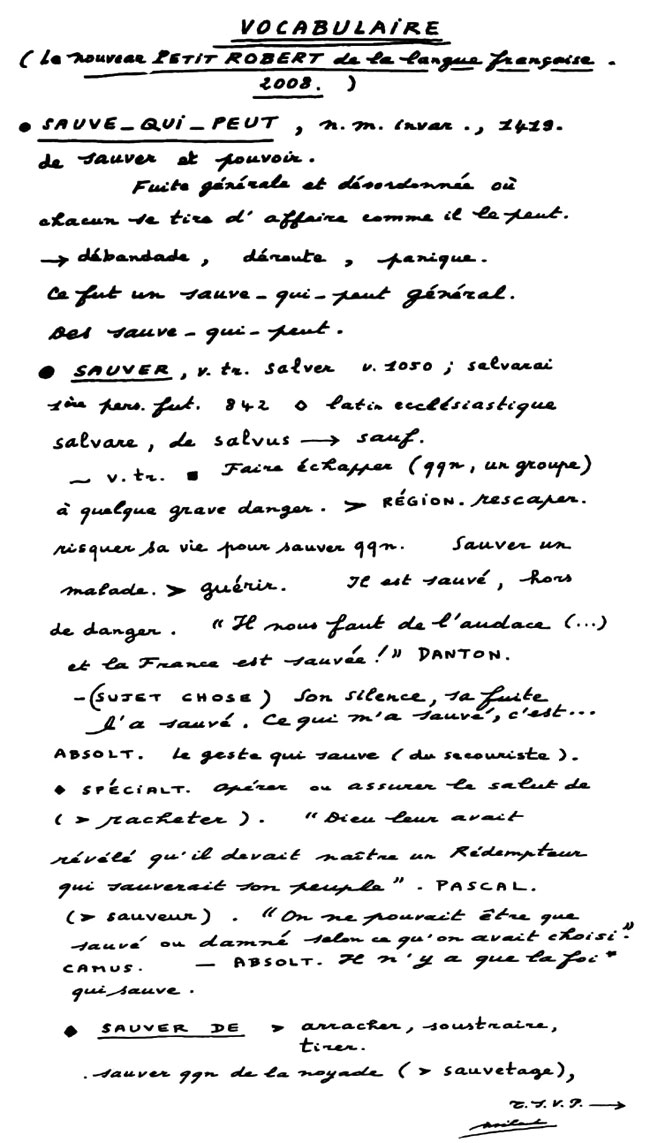 VOCABULAIRE
( Le nouveau PETIT ROBERT de la langue française .
2008. )
• SAUVE-QUI-PEUT , n.m. invar ., 1419.
de sauver et pouvoir.
Fuite générale et désordonnée où
chacun se tire d'affaire comme il le peut.
→ débandade , déroute , panique.
Ce fut un sauve-qui-peut général.
Des sauve-qui-peut.
• SAUVER, v. tr. salver v. 1050 ; salvarai
1ère pers. fut. 842 ◇ latin ecclésiastique
salvare, de salvus → sauf.
~ v. tr. ■ Faire échapper (qqn, un groupe)
à quelque grave danger. > RÉGION. rescaper.
risquer sa vie pour sauver qqn. Sauver un
malade. > guérir. Il est sauvé, hors
de danger. "Il nous faut de l'audace (...)
et la France est sauvée !" DANTON.
-(SUJET CHOSE) Son silence, sa fuite
l'a sauvé. Ce qui m'a sauvé, c'est...
ABSOLT. Le geste qui sauve (du secouriste).
◆ SPÉCIALT. Opérer ou assurer le salut de
( > racheter ). "Dieu leur avait
révélé qu'il devait naître un Rédempteur
qui sauverait son peuple". PASCAL.
(> sauveur). "On ne pouvait être que
sauvé ou damné selon ce qu'on avait choisi".
CAMUS. — ABSOLT. Il n'y a que la foi *
qui sauve.
◆ SAUVER DE > arracher, soustraire,
tirer.
. sauver qqn de la noyade (> sauvetage),
T.S.V.P. →